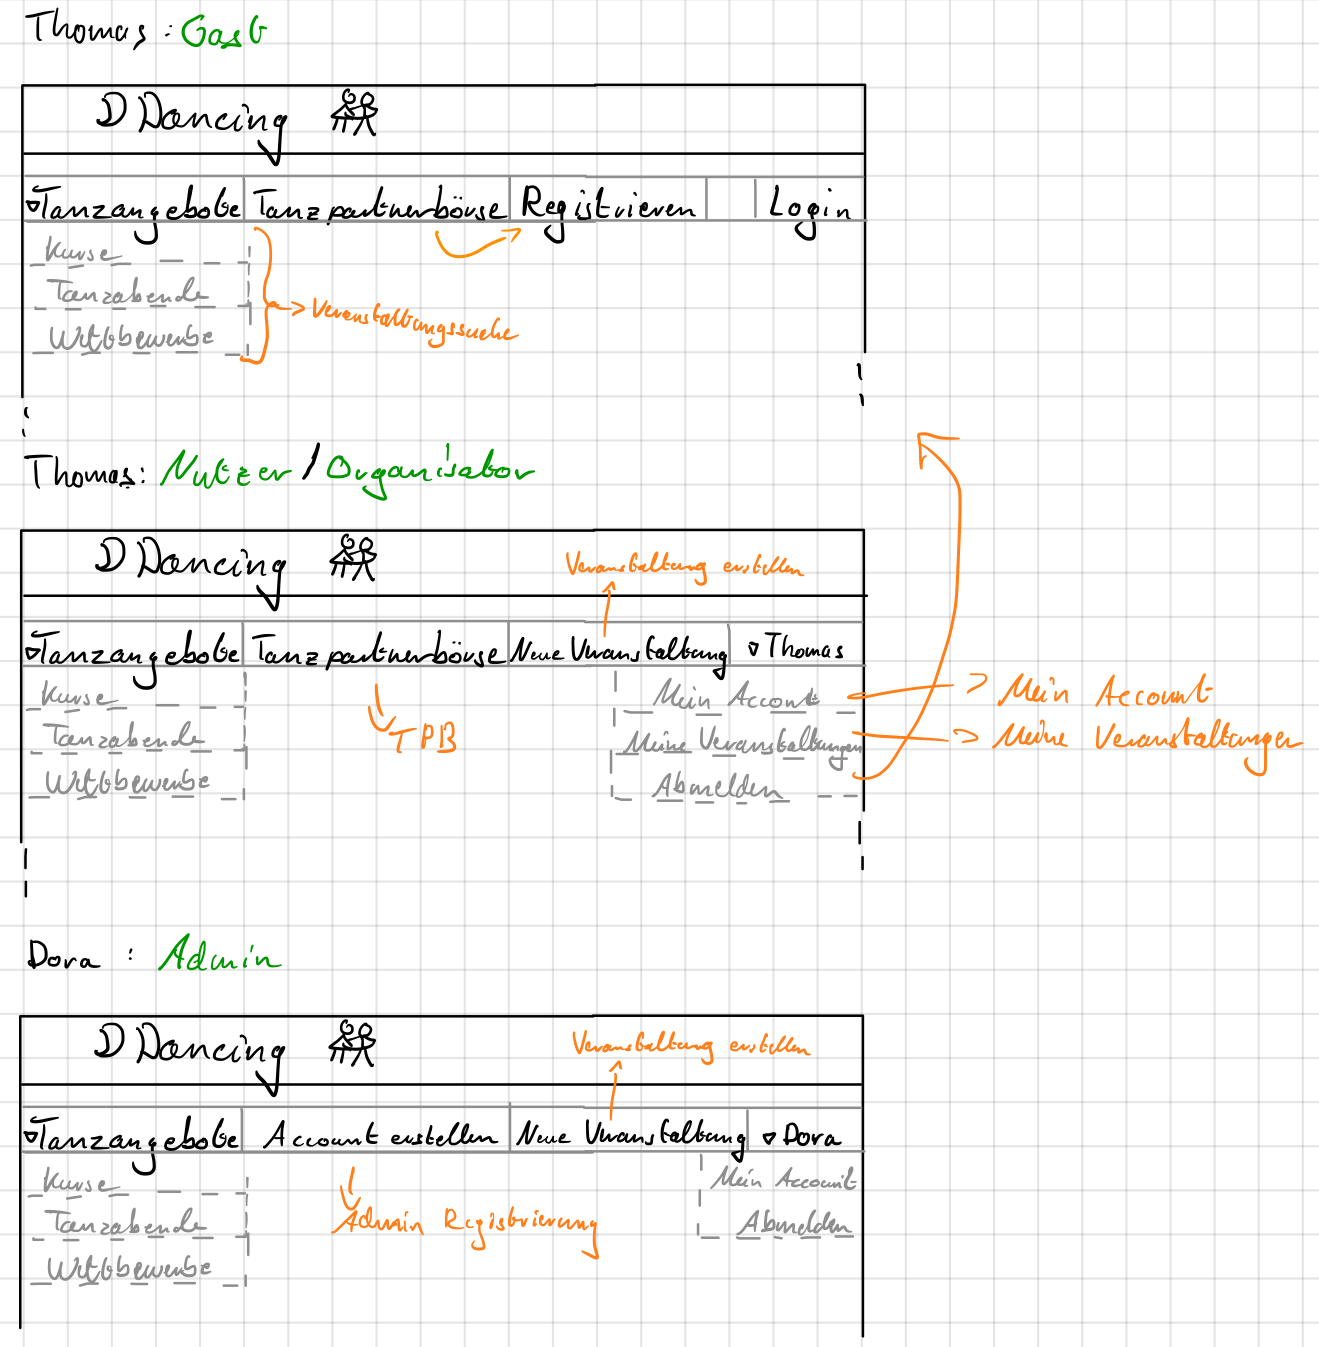 Thomas : Gast
DDancing
▿Tanzangebote Tanzpartnerbörse Registrieren Login
Kurse
Tanzabende
Wettbewerbe
Veranstaltungssuche
Thomas: Nutzer / Organisator
DDancing
Veranstaltung erstellen
▿Tanzangebote Tanzpartnerbörse Neue Veranstaltung ▿Thomas
Kurse
Tanzabende
Wettbewerbe
TPB
Mein Account
Meine Veranstaltungen
Abmelden
Mein Account
Meine Veranstaltungen
Dora : Admin
DDancing
Veranstaltung erstellen
▿Tanzangebote Account erstellen Neue Veranstaltung ▿Dora
Kurse
Tanzabende
Wettbewerbe
Admin Registrierung
Mein Account
Abmelden